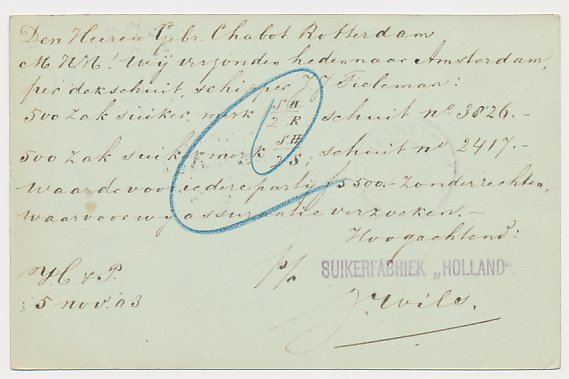 Den Heeren Gebr. Chabot Rotterdam
M. HH! Wij verzonden heden naar Amsterdam,
per dekschuit, schipper J. J. Tieleman:
500 zak suiker, merk SH/2R schuit no 3826.-
500 zak suiker merk SH/2S, schuit no 2417.-
waarde voor iedere partij f 5500.- zonder rechten,
waarvoor wij assurantie verzoeken.-
Hoogachtend:
p/. SUIKERFABRIEK „HOLLAND".
5 nov. '03 J. Wils.